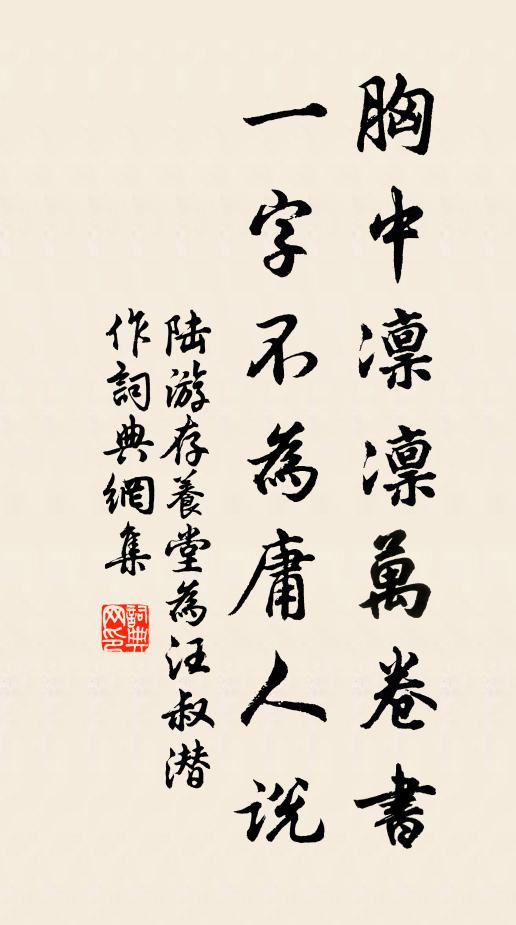 胸中凛凛萬卷書
一字不為庸人説
陆游存養堂為汪叔潜
作詞典網集
詞典网印